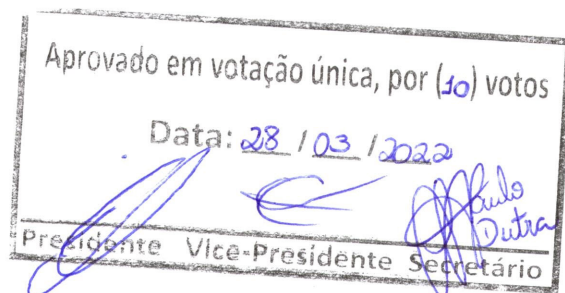 Aprovado em votação única, por (10) votos
Data: 28 / 03 / 2022
Dutra
Presidente Vice-Presidente Secretário